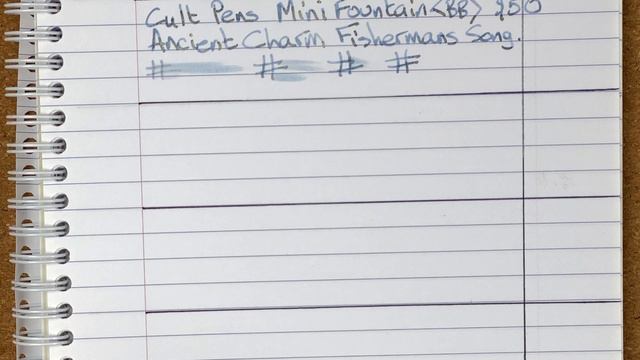 Cult Pens Mini Fountain <BB> 250
Ancient Charm Fishermans Song.
# # # #